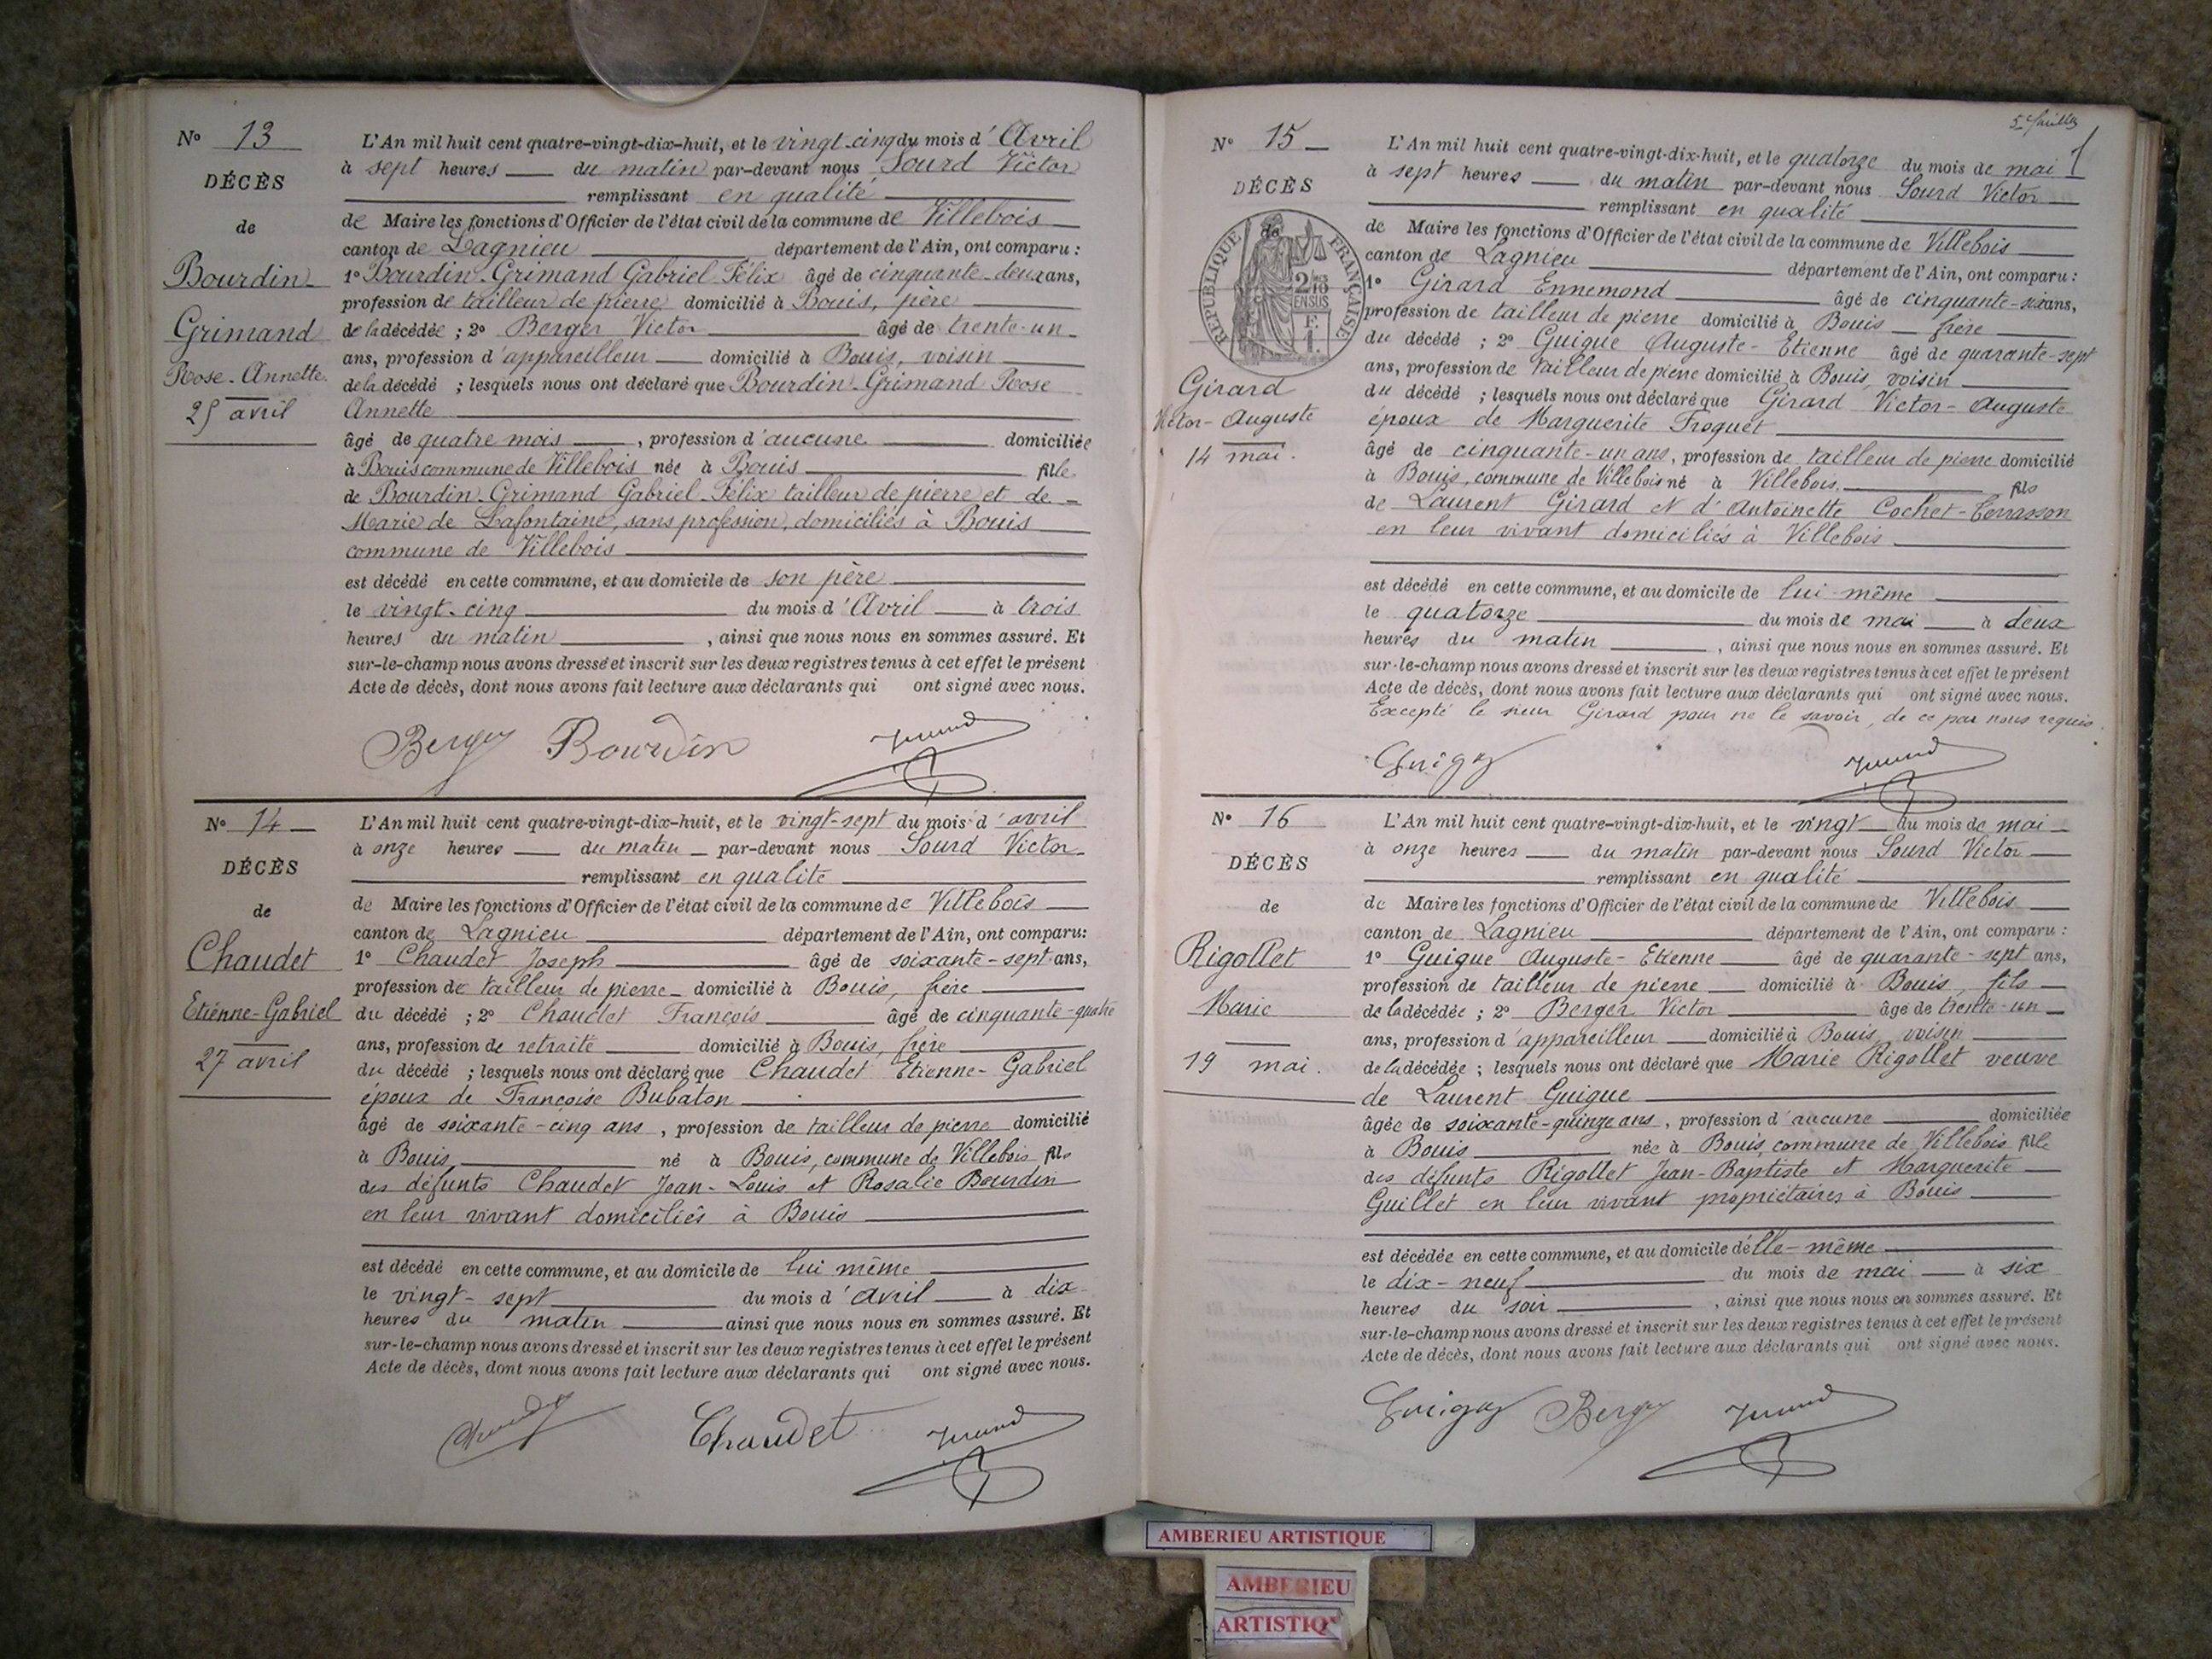 N° 13
DÉCÈS
de
Bourdin
Grimand
Rose-Annette
25 avril
L'An mil huit cent quatre-vingt-dix-huit, et le vingt-cinq du mois d'Avril
à sept heures du matin par-devant nous Sourd Victor
remplissant en qualité
de Maire les fonctions d'Officier de l'état civil de la commune de Villebois
canton de Lagnieu département de l'Ain, ont comparu :
1° Bourdin-Grimand Gabriel-Félix âgé de cinquante-deux ans,
profession de tailleur de pierre domicilié à Bouis, père
de la décédée ; 2° Berger Victor âgé de trente-un
ans, profession d'appareilleur domicilié à Bouis, voisin
de la décédé ; lesquels nous ont déclaré que Bourdin-Grimand Rose
Annette
âgé de quatre mois, profession d'aucune domiciliée
à Bouis commune de Villebois née à Bouis fille
de Bourdin-Grimand Gabriel-Félix tailleur de pierre et de
Marie de Lafontaine, sans profession, domiciliés à Bouis
commune de Villebois
est décédé en cette commune, et au domicile de son père
le vingt-cinq du mois d'Avril à trois
heures du matin, ainsi que nous nous en sommes assuré. Et
sur-le-champ nous avons dressé et inscrit sur les deux registres tenus à cet effet le présent
Acte de décès, dont nous avons fait lecture aux déclarants qui ont signé avec nous.
Berger Bourdin
N° 14
DÉCÈS
de
Chaudet
Etienne-Gabriel
27 avril
L'An mil huit cent quatre-vingt-dix-huit, et le vingt-sept du mois d'avril
à onze heures du matin par-devant nous Sourd Victor
remplissant en qualité
de Maire les fonctions d'Officier de l'état civil de la commune de Villebois
canton de Lagnieu département de l'Ain, ont comparu:
1° Chaudet Joseph âgé de soixante-sept ans,
profession de tailleur de pierre domicilié à Bouis, frère
du décédé ; 2° Chaudet François âgé de cinquante-quatre
ans, profession de retraité domicilié à Bouis, frère
du décédé ; lesquels nous ont déclaré que Chaudet Etienne-Gabriel
époux de Françoise Bubaton
âgé de soixante-cinq ans, profession de tailleur de pierre domicilié
à Bouis né à Bouis, commune de Villebois fils
des défunts Chaudet Jean-Louis et Rosalie Bourdin
en leur vivant domiciliés à Bouis
est décédé en cette commune, et au domicile de lui même
le vingt-sept du mois d'avril à dix
heures du matin ainsi que nous nous en sommes assuré. Et
sur-le-champ nous avons dressé et inscrit sur les deux registres tenus à cet effet le présent
Acte de décès, dont nous avons fait lecture aux déclarants qui ont signé avec nous.
Chaudet
5e feuillet
N° 15
DÉCÈS
de
RÉPUBLIQUE FRANÇAISE
2/10 EN SUS
Girard
Victor-Auguste
14 mai.
L'An mil huit cent quatre-vingt-dix-huit, et le quatorze du mois de mai
à sept heures du matin par-devant nous Sourd Victor
remplissant en qualité
de Maire les fonctions d'Officier de l'état civil de la commune de Villebois
canton de Lagnieu département de l'Ain, ont comparu :
1° Girard Ennemond âgé de cinquante-six ans,
profession de tailleur de pierre domicilié à Bouis frère
du décédé ; 2° Guigue Auguste-Etienne âgé de quarante-sept
ans, profession de tailleur de pierre domicilié à Bouis, voisin
du décédé ; lesquels nous ont déclaré que Girard Victor-Auguste
époux de Marguerite Troquet
âgé de cinquante-un ans, profession de tailleur de pierre domicilié
à Bouis, commune de Villebois né à Villebois fils
de Laurent Girard et d'Antoinette Cochet-Terrasson
en leur vivant domiciliés à Villebois
est décédé en cette commune, et au domicile de lui même
le quatorze du mois de mai à deux
heures du matin, ainsi que nous nous en sommes assuré. Et
sur-le-champ nous avons dressé et inscrit sur les deux registres tenus à cet effet le présent
Acte de décès, dont nous avons fait lecture aux déclarants qui ont signé avec nous.
Excepté le sieur Girard pour ne le savoir, de ce par nous requis.
Guigue
N° 16
DÉCÈS
de
Rigollet
Marie
19 mai.
L'An mil huit cent quatre-vingt-dix-huit, et le vingt du mois de mai
à onze heures du matin par-devant nous Sourd Victor
remplissant en qualité
de Maire les fonctions d'Officier de l'état civil de la commune de Villebois
canton de Lagnieu département de l'Ain, ont comparu :
1° Guigue Auguste-Etienne âgé de quarante-sept ans,
profession de tailleur de pierre domicilié à Bouis, fils
de la décédée ; 2° Berger Victor âgé de trente-un
ans, profession d'appareilleur domicilié à Bouis, voisin
de la décédée ; lesquels nous ont déclaré que Marie Rigollet veuve
de Laurent Guigue
âgée de soixante-quinze ans, profession d'aucune domiciliée
à Bouis née à Bouis, commune de Villebois fille
des défunts Rigollet Jean-Baptiste et Marguerite
Guillet en leur vivant propriétaires à Bouis
est décédée en cette commune, et au domicile d'elle-même
le dix-neuf du mois de mai à six
heures du soir, ainsi que nous nous en sommes assuré. Et
sur-le-champ nous avons dressé et inscrit sur les deux registres tenus à cet effet le présent
Acte de décès, dont nous avons fait lecture aux déclarants qui ont signé avec nous.
Guigue Berger
AMBERIEU ARTISTIQUE
AMBERIEU
ARTISTIQ